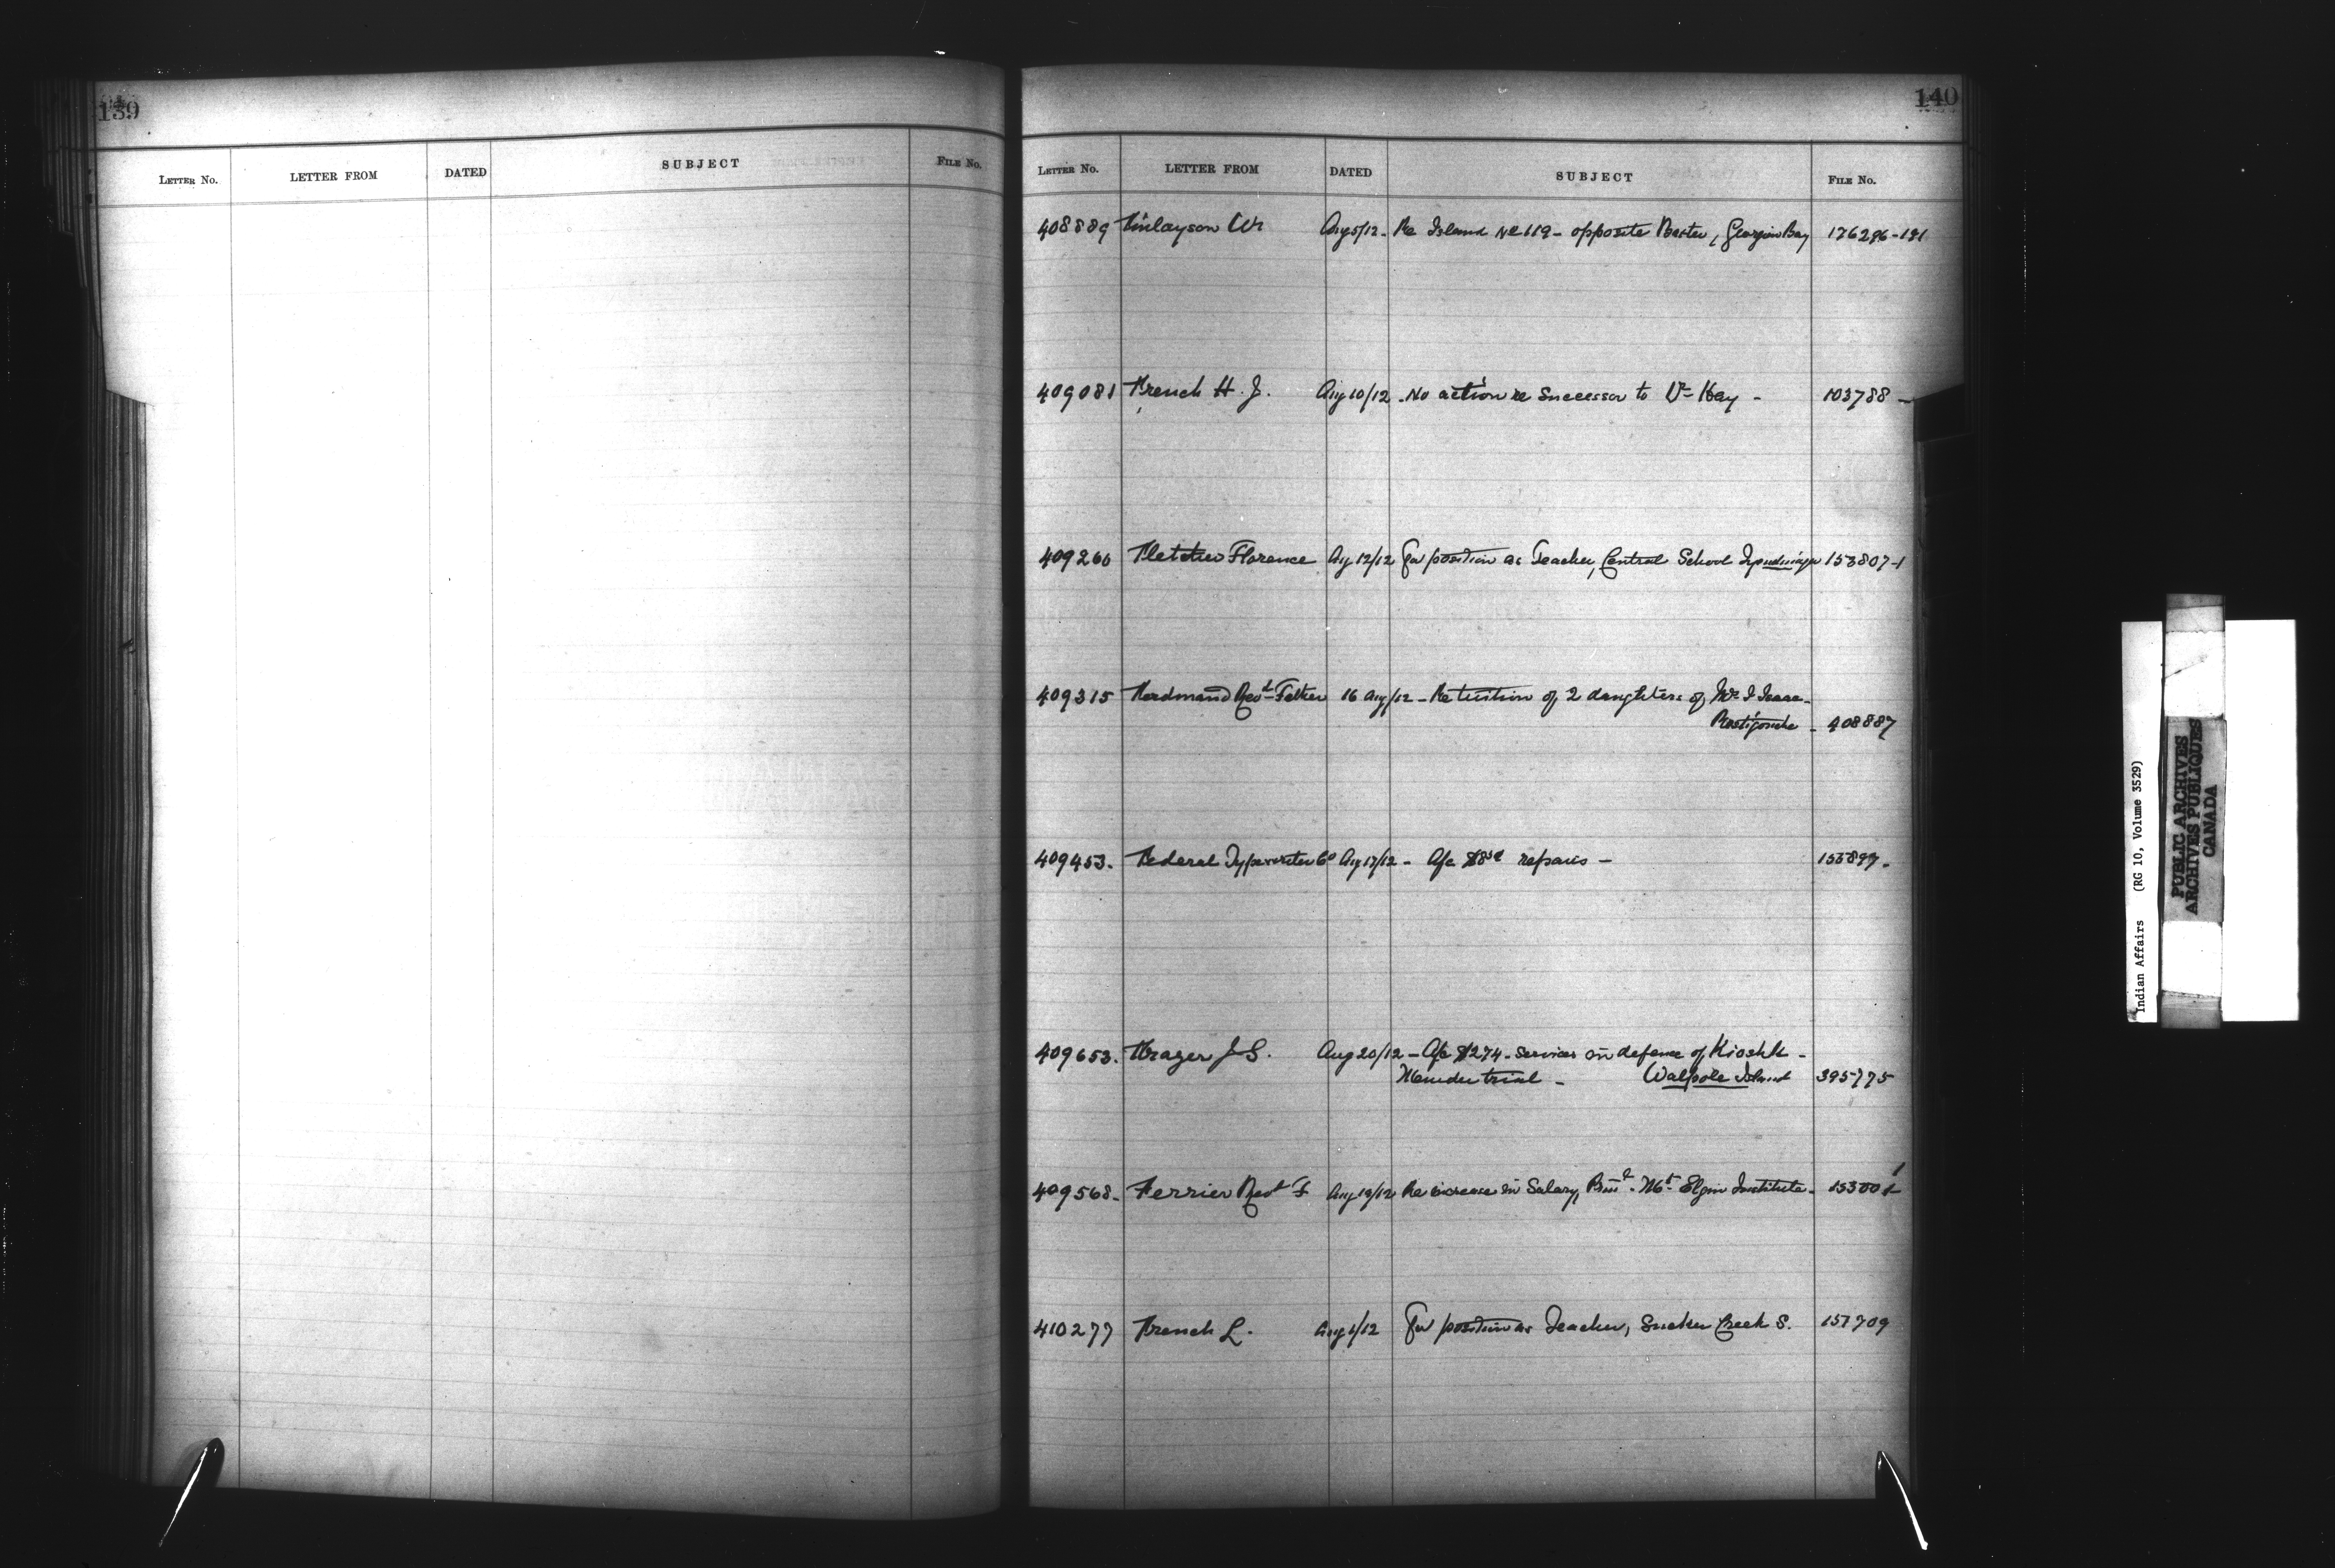 139
LETTER NO. LETTER FROM DATED SUBJECT FILE NO.
140
LETTER NO. LETTER FROM DATED SUBJECT FILE NO.
408889 Finlayson Wm Aug 5/12 - Re Island No 119 - opposite Baxter, Georgian Bay 176296-191
409081 French H. J. Aug 10/12 - No action re Successor to Dr Hay - 103788 -
409260 Fletcher Florence Aug 12/12 For position as Teacher, Central School 153807-1
409315 Revd Father 16 Aug/12 - Re tuition of 2 daughters of Isaac -
Restigouche - 408887
409453. Federal Typewriter Co Aug 17/12 - A/c repairs - 153899.
409653. Frazer J S. Aug 20/12 - A/c $274 - services in defence of Kioshk -
Murder trial - Walpole Island 395775
409568. Ferrier Rev T Aug 19/12 Re increase in Salary, Mt Elgin Institute - 1
410277 French L. Aug 1/12 For position as Teacher, Sucker Creek S. 157709
Indian Affairs (RG 10, Volume 3529)
PUBLIC ARCHIVES
ARCHIVES PUBLIQUES
CANADA